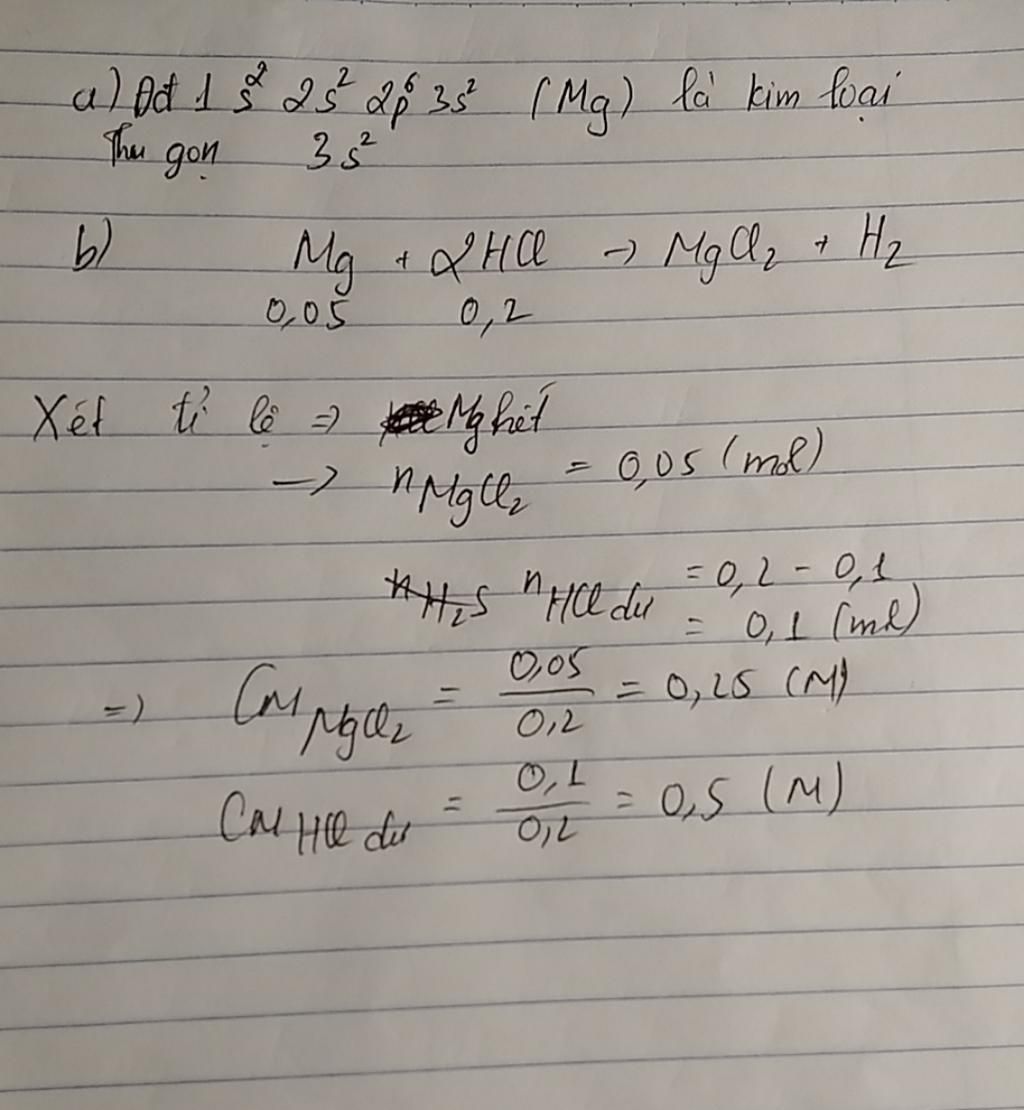 a) Đđ 1s² 2s² 2p⁶ 3s² (Mg) là kim loại
Thu gọn 3s²
b) Mg + 2HCl → MgCl₂ + H₂
0,05 0,2
Xét tỉ lệ ⇒ Mg hết
→ nMgCl₂ = 0,05 (mol)
nH₂S nHCl dư = 0,2 - 0,1
= 0,1 (ml)
=) CM MgCl₂ = 0,05/0,2 = 0,25 (M)
CM HCl dư = 0,1/0,2 = 0,5 (M)